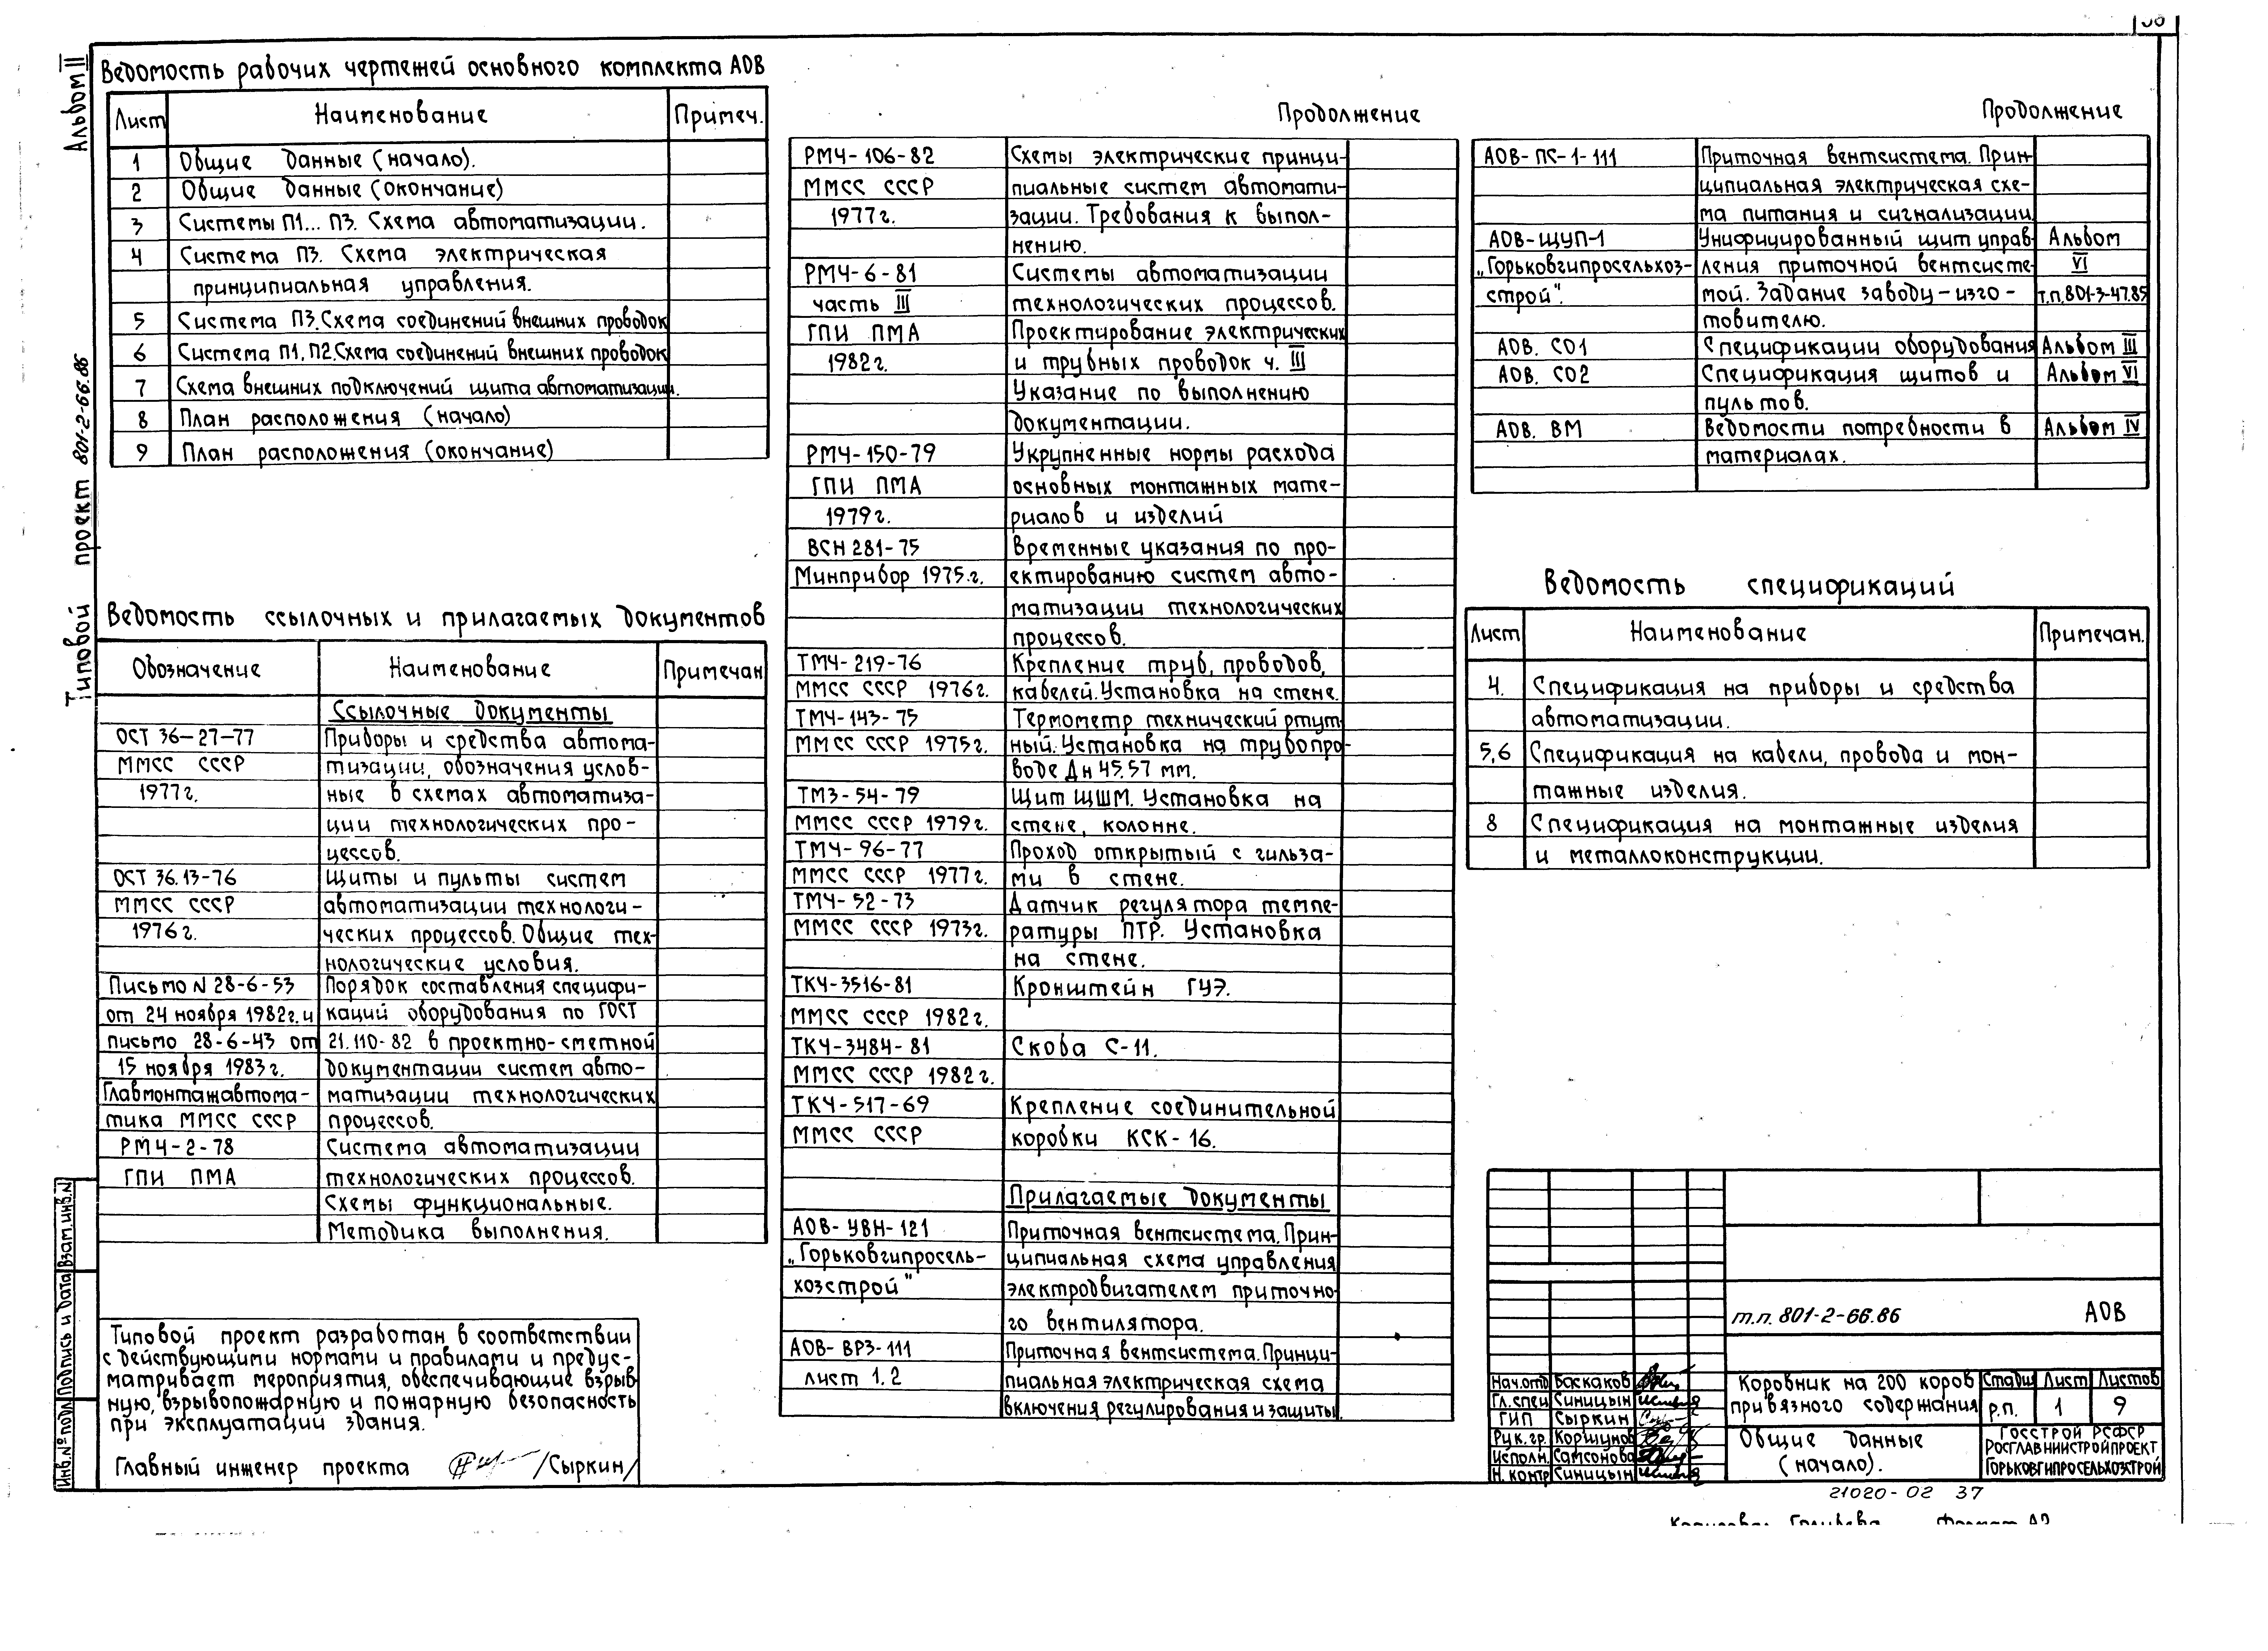 Альбом II
Типовой проект 801-2-66.86
Ведомость рабочих чертежей основного комплекта АОВ
Лист Наименование Примеч.
1 Общие данные (начало).
2 Общие данные (окончание)
3 Системы П1... П3. Схема автоматизации.
4 Система П3. Схема электрическая
принципиальная управления.
5 Система П3. Схема соединений внешних проводок
6 Система П1, П2. Схема соединений внешних проводок
7 Схема внешних подключений щита автоматизации.
8 План расположения (начало)
9 План расположения (окончание)
Ведомость ссылочных и прилагаемых документов
Обозначение Наименование Примечан
Ссылочные документы
ОСТ 36-27-77 Приборы и средства автома-
ММСС СССР тизации, обозначения услов-
1977г. ные в схемах автоматиза-
ции технологических про-
цессов.
ОСТ 36.13-76 Щиты и пульты систем
ММСС СССР автоматизации технологи-
1976г. ческих процессов. Общие тех-
нологические условия.
Письмо N 28-6-53 Порядок составления специфи-
от 24 ноября 1982г. и каций оборудования по ГОСТ
письмо 28-6-43 от 21.110-82 в проектно-сметной
15 ноября 1983г. документации систем авто-
Главмонтажавтома- матизации технологических
тика ММСС СССР процессов.
РМ4-2-78 Система автоматизации
ГПИ ПМА технологических процессов.
Схемы функциональные.
Методика выполнения.
Типовой проект разработан в соответствии
с действующими нормами и правилами и предус-
матривает мероприятия, обеспечивающие взрыв-
ную, взрывопожарную и пожарную безопасность
при эксплуатации здания.
Главный инженер проекта /Сыркин/
Инв. № подл. Подпись и дата Взам. инв. N
Продолжение
РМ4-106-82 Схемы электрические принци-
ММСС СССР пиальные систем автомати-
1977г. зации. Требования к выпол-
нению.
РМ4-6-81 Системы автоматизации
часть III технологических процессов.
ГПИ ПМА Проектирование электрических
1982г. и трубных проводок ч. III
Указание по выполнению
документации.
РМ4-150-79 Укрупненные нормы расхода
ГПИ ПМА основных монтажных мате-
1979г. риалов и изделий
ВСН 281-75 Временные указания по про-
Минприбор 1975.г. ектированию систем авто-
матизации технологических
процессов.
ТМ4-219-76 Крепление труб, проводов,
ММСС СССР 1976г. кабелей. Установка на стене.
ТМ4-143-75 Термометр технический ртут
ММСС СССР 1975г. ный. Установка на трубопро-
воде Дн 45.57 мм.
ТМ3-54-79 Щит ЩШМ. Установка на
ММСС СССР 1979г. стене, колонне.
ТМ4-96-77 Проход открытый с гильза-
ММСС СССР 1977г. ми в стене.
ТМ4-52-73 Датчик регулятора темпе-
ММСС СССР 1973г. ратуры ПТР. Установка
на стене.
ТК4-3516-81 Кронштейн ГУЭ.
ММСС СССР 1982г.
ТК4-3484-81 Скоба С-11.
ММСС СССР 1982г.
ТК4-517-69 Крепление соединительной
ММСС СССР коробки КСК-16.
Прилагаемые документы
АОВ-УВН-121 Приточная вентсистема. Прин-
„Горьковгипросель- ципиальная схема управления
хозстрой" электродвигателем приточно-
го вентилятора.
АОВ-ВРЗ-111 Приточная вентсистема. Принци-
лист 1.2 пиальная электрическая схема
включения регулирования и защиты.
Продолжение
АОВ-ПС-1-111 Приточная вентсистема. Прин-
ципиальная электрическая схе-
ма питания и сигнализации.
АОВ-ЩУП-1 Унифицированный щит управ- Альбом
„Горьковгипросельхоз- ления приточной вентсисте- VI
строй". мой. Задание заводу-изго- т.п.801-3-47.85
товителю.
АОВ. СО1 Спецификации оборудования Альбом III
АОВ. СО2 Спецификация щитов и Альбом VI
пультов.
АОВ. ВМ Ведомости потребности в Альбом IV
материалах.
Ведомость спецификаций
Лист Наименование Примечан.
4. Спецификация на приборы и средства
автоматизации.
5,6 Спецификация на кабели, провода и мон-
тажные изделия.
8 Спецификация на монтажные изделия
и металлоконструкции.
т.п. 801-2-66.86 АОВ
Нач.отд Баскаков
Гл.спец Синицын
ГИП Сыркин
Рук.гр. Коршунов
Исполн. Самсонова
Н. контр Синицын
Коровник на 200 коров
привязного содержания
Стадия Лист Листов
р.п. 1 9
Общие данные
(начало).
ГОССТРОЙ РСФСР
РОСГЛАВНИИСТРОЙПРОЕКТ
ГОРЬКОВГИПРОСЕЛЬХОЗСТРОЙ
21020-02 37